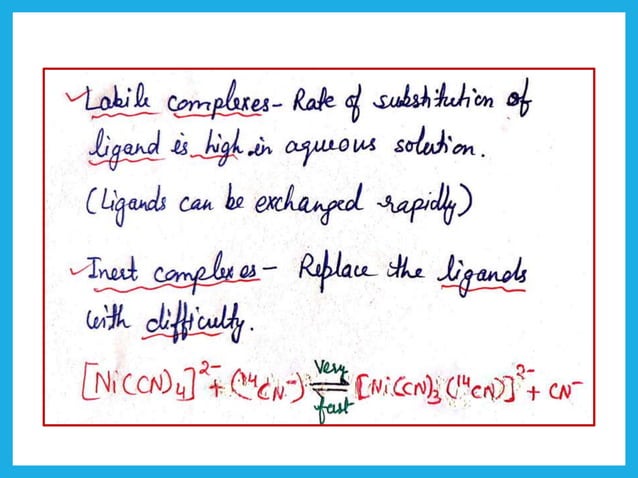 ✓Labile complexes - Rate of substitution of
ligand is high in aqueous solution.
(Ligands can be exchanged rapidly)
✓Inert complexes - Replace the ligands
with difficulty.
[Ni(CN)4]²⁻ + (¹⁴CN⁻) ⇌ Very fast [Ni(CN)3(¹⁴CN)]²⁻ + CN⁻